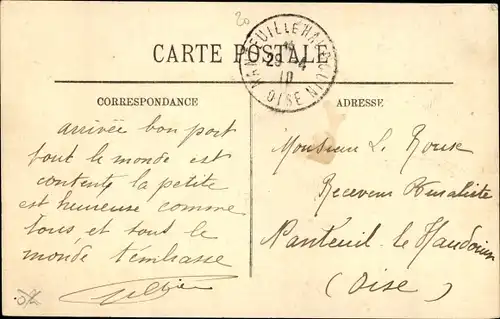 20
CARTE POSTALE
NANTEUIL LE HAUDOUIN
29 -4
10
OISE
CORRESPONDANCE
ADRESSE
arrivée bon port
tout le monde est
contents la petite
est heureuse comme
tous et tout le
monde t'embrasse
Monsieur L. Rouse
Receveur Buraliste
Nanteuil-le-Haudouin
(Oise)